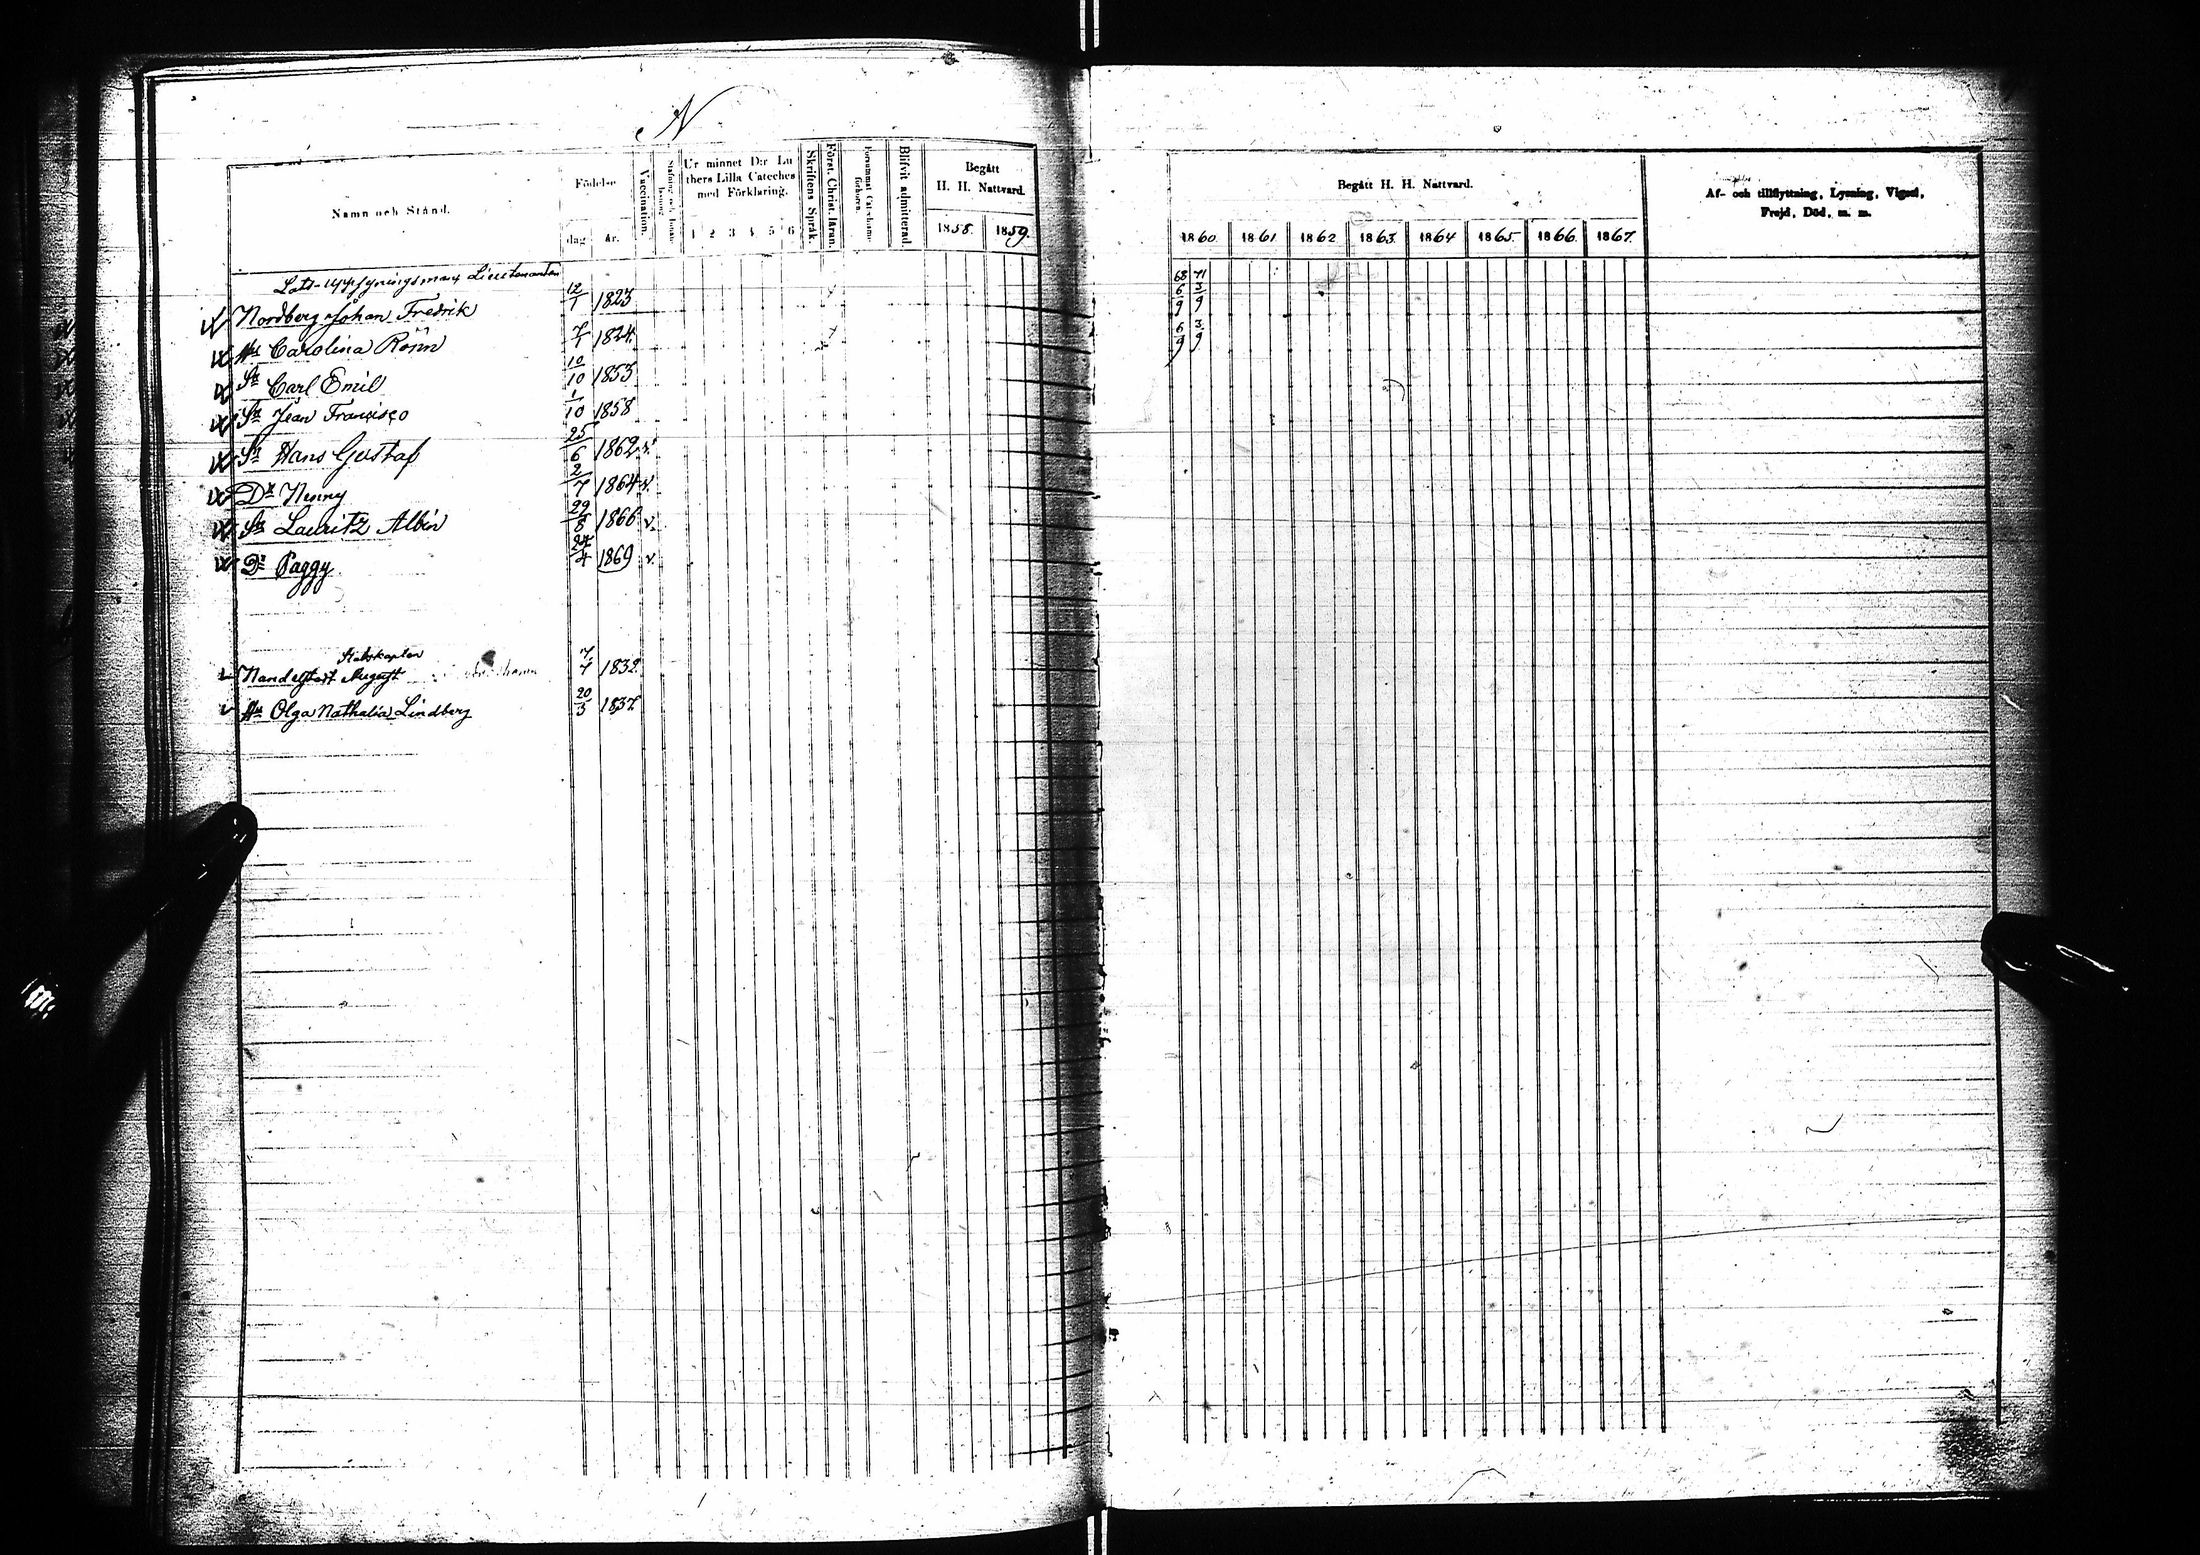 N
Namn och Stånd.
Födelse
dag
år.
Vaccination.
Ur minnet D:r Lu
thers Lilla Cateches
med Förklaring.
1 2 3 4 5 6
Skriftens Språk.
Först. Christ. läran.
Blifvit admitterad.
Begått
H. H. Nattvard.
1858. 1859.
Begått H. H. Nattvard.
1860. 1861 1862 1863. 1864 1865. 1866. 1867.
Af- och tillflyttning, Lysning, Vigsel,
Frejd, Död, m. m.
Lots-uppsyningsman Lieutenanten
Nordberg Johan Fredrik 12/1 1823 68 71 6/9 3/9
Hu Carolina Rönn 7/1 1824. 6/9 3/9
Sn Carl Emil 10/10 1853
Sn Jean Francisco 1/10 1858
Sn Hans Gustaf 25/6 1862 v.
Dr Nenny 2/7 1864 v.
Sn Lauritz Albin 29/8 1866 v.
Dr Paggy 24/4 1869 v.
Stabskapten
August 7/7 1832.
Hu Olga Nathalia Lindberg 20/3 1837.